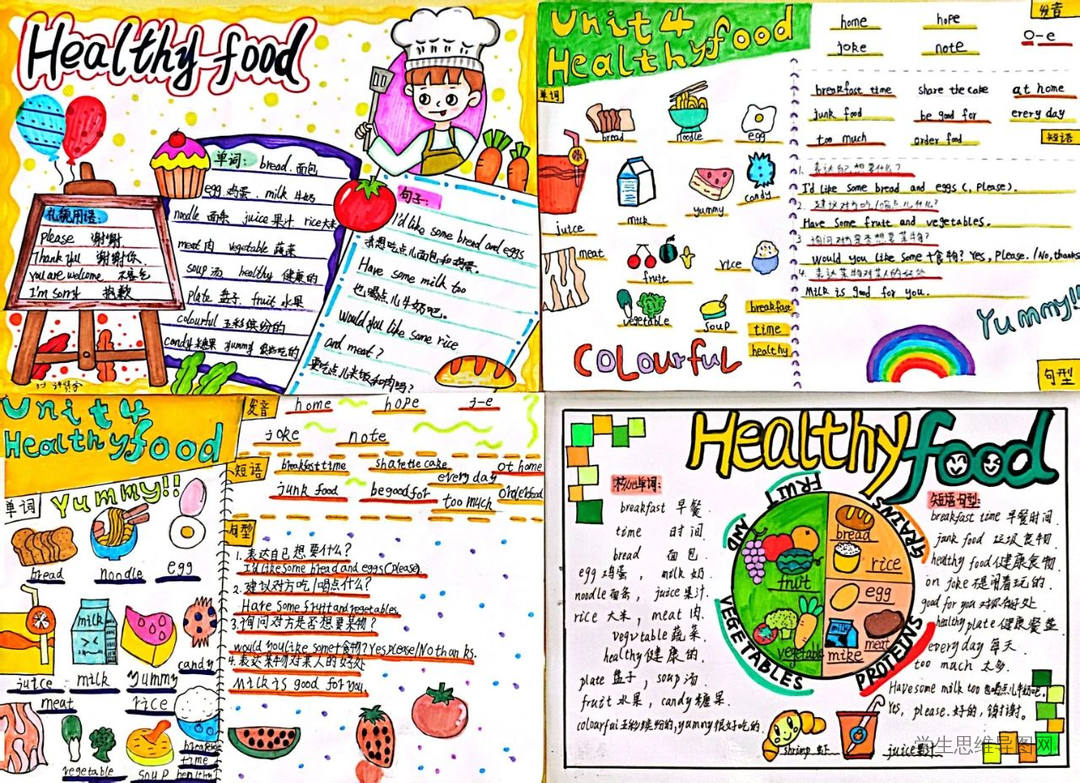 Healthy food
单词: bread 面包
egg 鸡蛋. milk 牛奶
noodle 面条 juice 果汁 rice 大米
meat 肉 vegetable 蔬菜
soup 汤 healthy 健康的
plate 盘子. fruit 水果
colourful 五彩缤纷的
candy 糖果 yummy 很好吃的
礼貌用语:
Please 谢谢
Thank you 谢谢你
you are welcome 不客气
I'm sorry 抱歉
句子:
I'd like some bread and eggs
我想吃点儿面包和鸡蛋.
Have some milk too
也喝点儿牛奶吧.
Would you like some rice
and meat?
要吃点儿米饭和肉吗?
Unit 4
Healthy food
单词
bread
noodle
egg
juice
milk
yummy
candy
meat
fruit
rice
vegetable
soup
breakfast
time
healthy
COLOURFUL
发音
home
hope
o-e
joke
note
breakfast time
share the cake
at home
junk food
be good for
every day
too much
order food
短语
1. 表达自己想要什么?
I'd like some bread and eggs (, please).
2. 建议对方吃/喝点儿什么?
Have some fruit and vegetables.
3. 询问对方是否想要某物?
Would you like some 十食物? Yes, please. /No, thanks
4. 表达某物对某人的好处
Milk is good for you.
Yummy!!
句型
Unit 4
Healthy food
单词
Yummy!!
bread
noodle
egg
milk
juice
milk
yummy
candy
meat
rice
vegetable
soup
breakfast
time
healthy
发音
home
hope
j-e
joke
note
短语
breakfast time
share the cake
every day
at home
junk food
be good for
too much
order food
句型
1. 表达自己想要什么?
I'd like some bread and eggs (please)
2. 建议对方吃/喝点什么?
Have some fruit and vegetables.
3. 询问对方是否想要某物?
would you like some+食物? Yes please/No thanks.
4. 表达某物对某人的好处
Milk is good for you
Healthy food
核心单词:
breakfast 早餐
time 时间
bread 面包
egg 鸡蛋, milk 牛奶.
noodle 面条, juice 果汁.
rice 大米, meat 肉.
vegvtable 蔬菜.
healthy 健康的.
plate 盘子, soup 汤.
fruit 水果, candy 糖果.
colourful 五彩缤纷的, yummy 很好吃的.
FRUIT
AND
VEGETABLES
GRAINS
PROTEINS
fruit
vegetable
bread
rice
egg
milke
meat
shrimp 虾
juice 果汁
短语句型:
breakfast time 早餐时间.
jank food 垃圾食物.
healthy food 健康食物.
on joke 不是闹着玩的.
good for you 对你有好处
healthy plate 健康餐盘
every day 每天
too mach 太多.
Have some milk too 也喝点儿牛奶吧.
Yes, please. 好的, 谢谢.
学生思维导图网